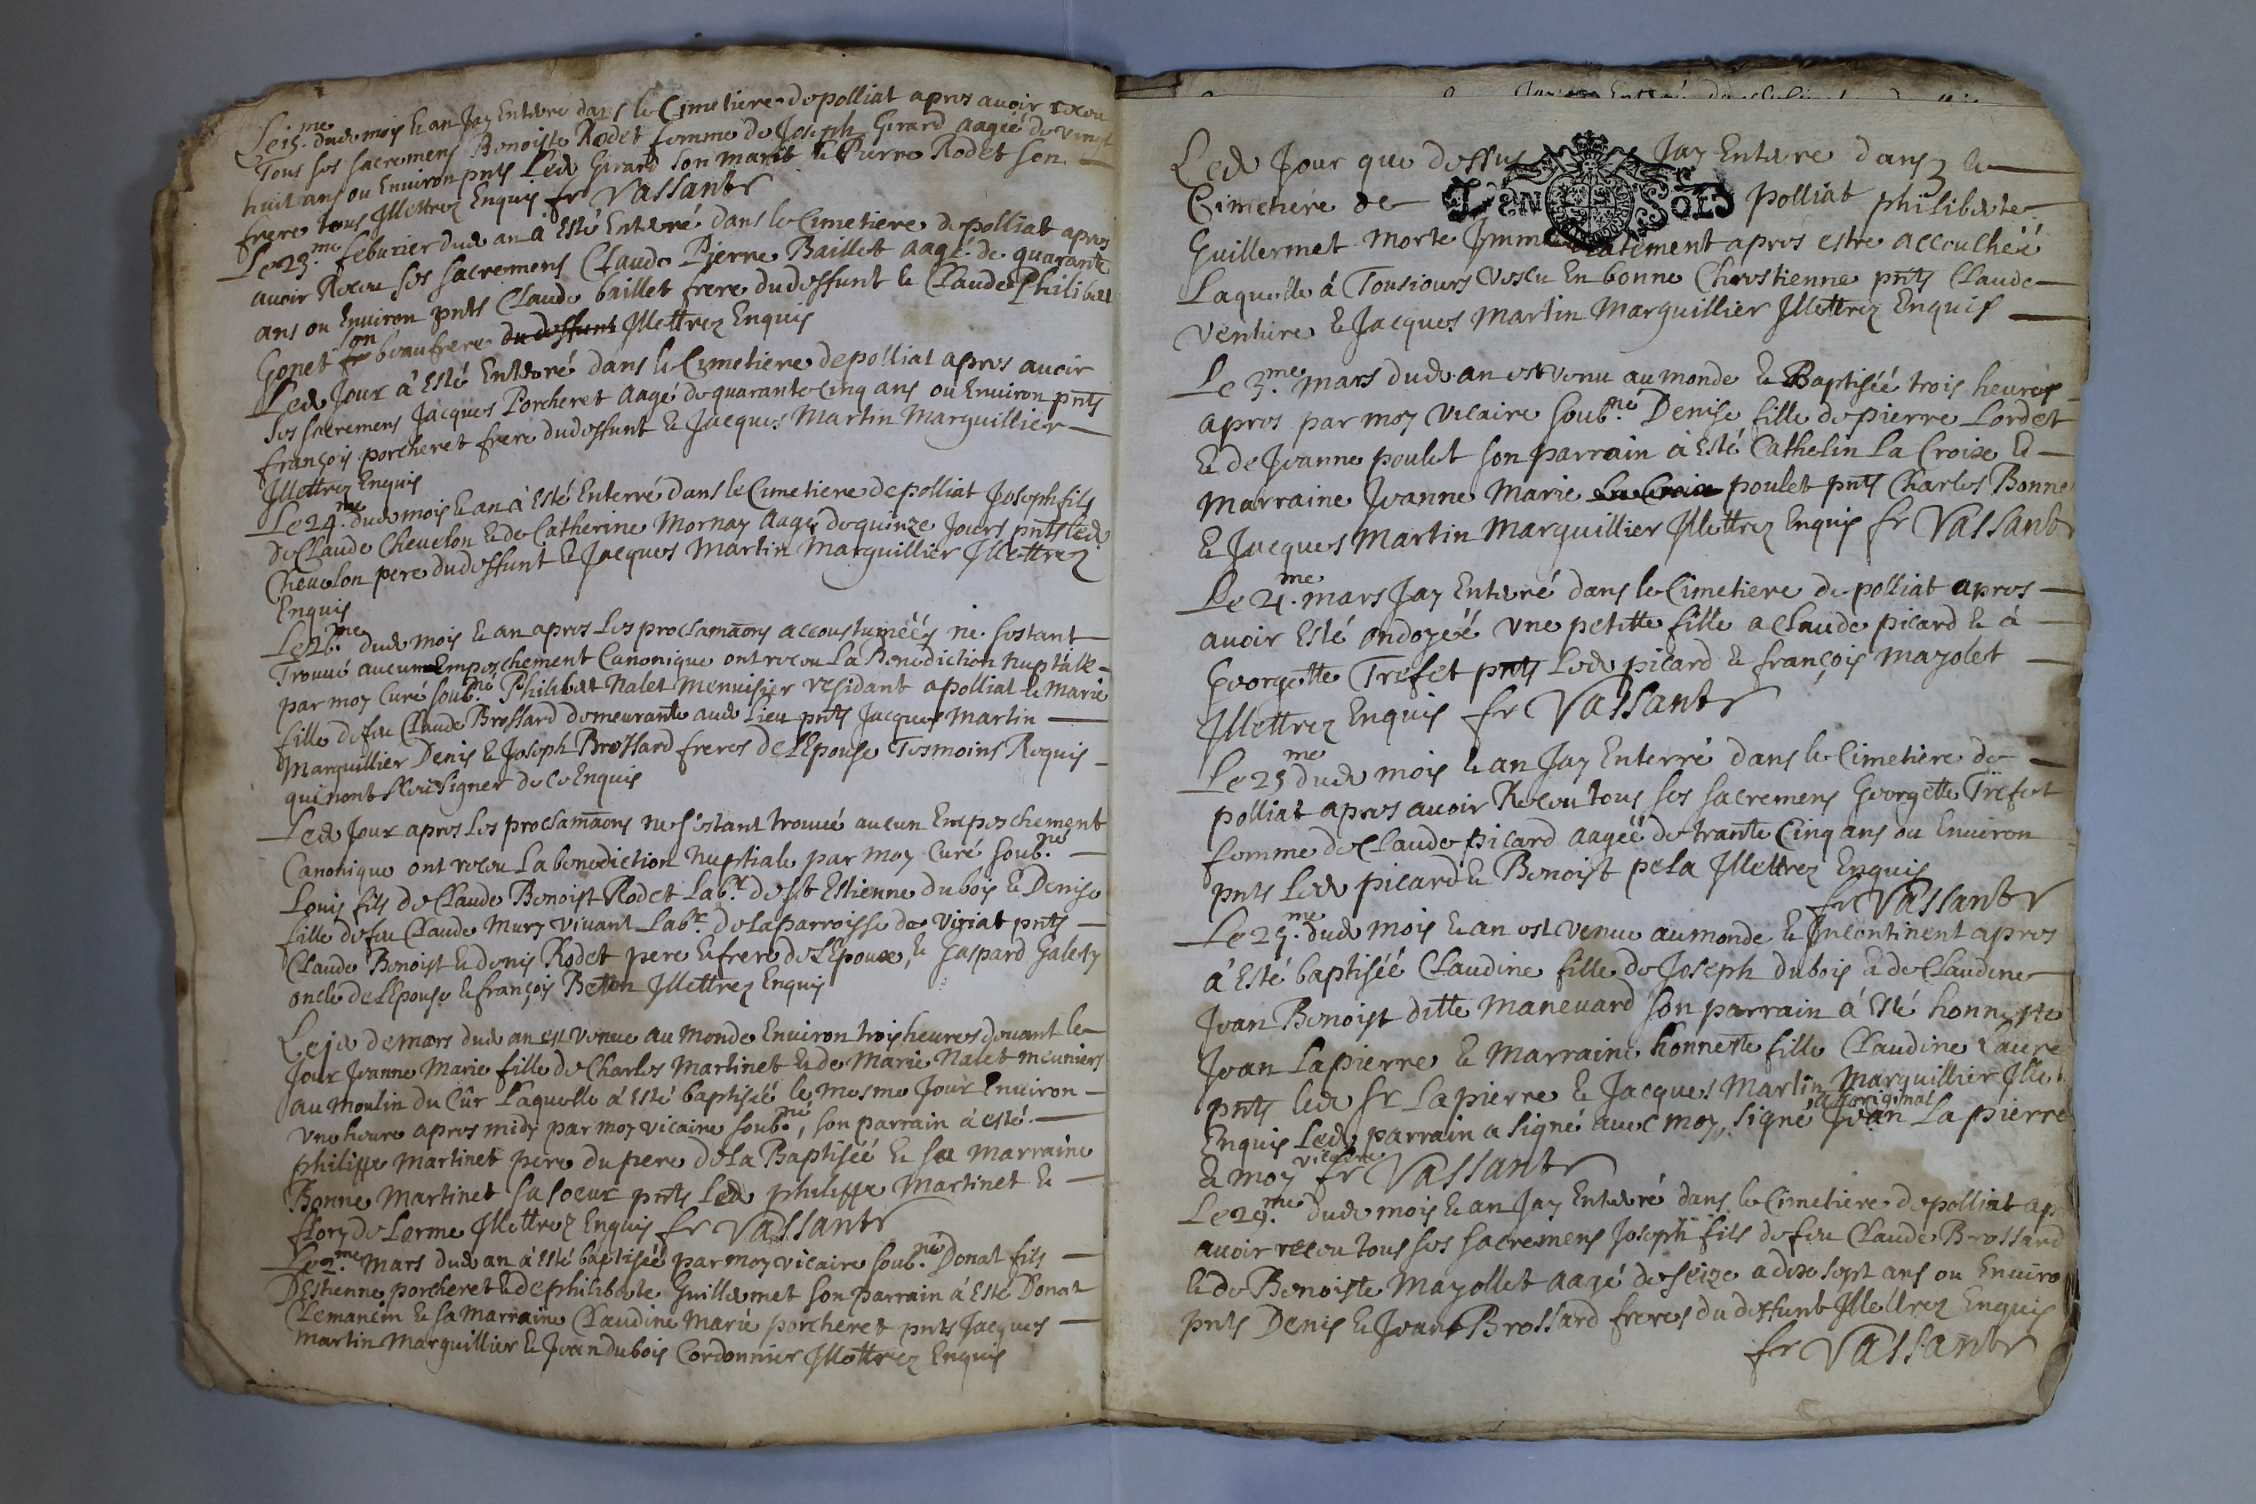 Le 15.me dud mois & an Jay Enterré dans le Cimetiere de polliat apres avoir recou
Tous ses sacremens Benoiste Rodet femme de Joseph Girard aagéé de vingt
huit ans ou Environ pnts Led Girard son marit & Pierre Rodet son
frere tous Illettrez Enquis fr Vassante
Le 23.me feburier dud an à Esté Enterré dans le Cimetiere de polliat apres
avoir Recou ses sacremens Claude Pierre Baillet aagé de quarante
ans ou Environ pnts Claude baillet frere du deffunt & Claude Philibert
Gonet son beaufrere du deffunt Illettrez Enquis
Led Jour à Esté Enterré dans le Cimetiere de polliat apres avoir
ses sacremens Jacques Porcheret aagé de quarante Cinq ans ou Environ pnts
françois porcheret frere du deffunt & Jacques Martin Marguillier
Illettrez Enquis
Le 24.me dud mois & an à Esté Enterré dans le Cimetiere de polliat Joseph fils
de Claude Chevelon & de Catherine Mornay aagé de quinze Jours pnts Led
Chevelon pere du deffunt & Jacques Martin Marguillier Illettrez
Enquis
Le 26.me dud mois & an apres les proclamãons accoustuméés ne sestant
Trouué aucun Empeschement Canonique ont recou La Benediction nuptialle
par moy Curé soub.né Philibert Nalet Menuisier residant a polliat & Marie
fille de feu Claude Brossard demeurante aud Lieu pnts Jacques Martin
Marguillier Denis & Joseph Brossard freres de L'Epouse Tesmoins Requis
qui nont sceu signer de ce Enquis
Led Jour apres les proclamãons ne s'estant trouué aucun Empeschement
Canonique ont recou La benediction nuptiale par moy Curé soub.né
Louis fils de Claude Benoist Rodet Lab.r de st Estienne du bois & Denise
fille de feu Claude Mury vivant Lab.r de La parroisse de Viriat pnts
Claude Benoist & denis Rodet pere & frere de L'Epoux, & Gaspard Galety
oncle de L'Epouse & françois Betton Illettrez Enquis
Le j.er de mars dud an est venue au Monde Environ trois heures devant le
Jour Jeanne Marie fille de Charles Martinet & de Marie Nalet meuniers
au Moulin du Cûr Laquelle à Esté baptiséé le mesme Jour Environ
vne heure apres midy par moy vicaire soub.né, son parrain à esté
philippe Martinet pere du pere de La Baptiséé & sa Marraine
Bonne Martinet sa soeur pnts Led philippe Martinet &
flory de Lorme Illettrez Enquis fr Vassante
Le 2.me Mars dud an à Esté baptiséé par moy vicaire soub.né Donat fils
D'Estienne porcheret & de philiberte Guillermet son parrain à Esté Donat
Clemancin & sa Marraine Claudine Marie porcheret pnts Jacques
Martin Marguillier & Jean dubois Cordonnier Illettrez Enquis
Led Jour que dessus Jay Enterré dans le
Cimetiere de polliat philiberte
Guillermet Morte Immediatement apres estre accouchéé
Laquelle à Tousiours vescu En bonne Chrestienne pnts Claude
Venture & Jacques Martin Marguillier Illettrez Enquis
Le 3.me Mars dud an est venu au monde & Baptiséé trois heures
apres par moy vicaire soub.né Denise fille de pierre Lordet
& de Jeanne poulet son parrain à Esté Cathelin La Croize &
Marraine Jeanne Marie poulet pnts Charles Bonne
& Jacques Martin Marguillier Illettrez Enquis fr Vassante
Le 21.me mars Jay Enterré dans le Cimetiere de polliat apres
avoir Esté ondoyéé vne petitte fille a Claude picard & à
Georgette Trefet pnts Led picard & françois Mayolet
Illettrez Enquis fr Vassante
Le 25.me dud mois & an Jay Enterré dans le Cimetiere de
polliat apres avoir Recou tous ses sacremens Georgette Trefet
femme de Claude picard aagéé de trante Cinq ans ou Environ
pnts Led picard & Benoist pela Illettrez Enquis
fr Vassante
Le 29.me dud mois & an est venue au monde & Incontinent apres
à Esté baptiséé Claudine fille de Joseph dubois & de Claudine
Jean Benoist ditte Manevard son parrain à Esté honneste
Jean Lapierre & Marraine honneste fille Claudine Laure
pnts led sr Lapierre & Jacques Martin Marguillier Illet
Enquis Led parrain a signé avec moy, signé a Loriginal Jean La pierre
& moy vicaire fr Vassante
Le 29.me dud mois & an Jay Enterré dans le Cimetiere de polliat ap
avoir recou tous ses sacremens Joseph fils de feu Claude Brossard
& de Benoiste Mayollet aagé de seize a dixe sept ans ou Enviro
pnts Denis & Jean Brossard freres du deffunt Illettrez Enquis
fr Vassante